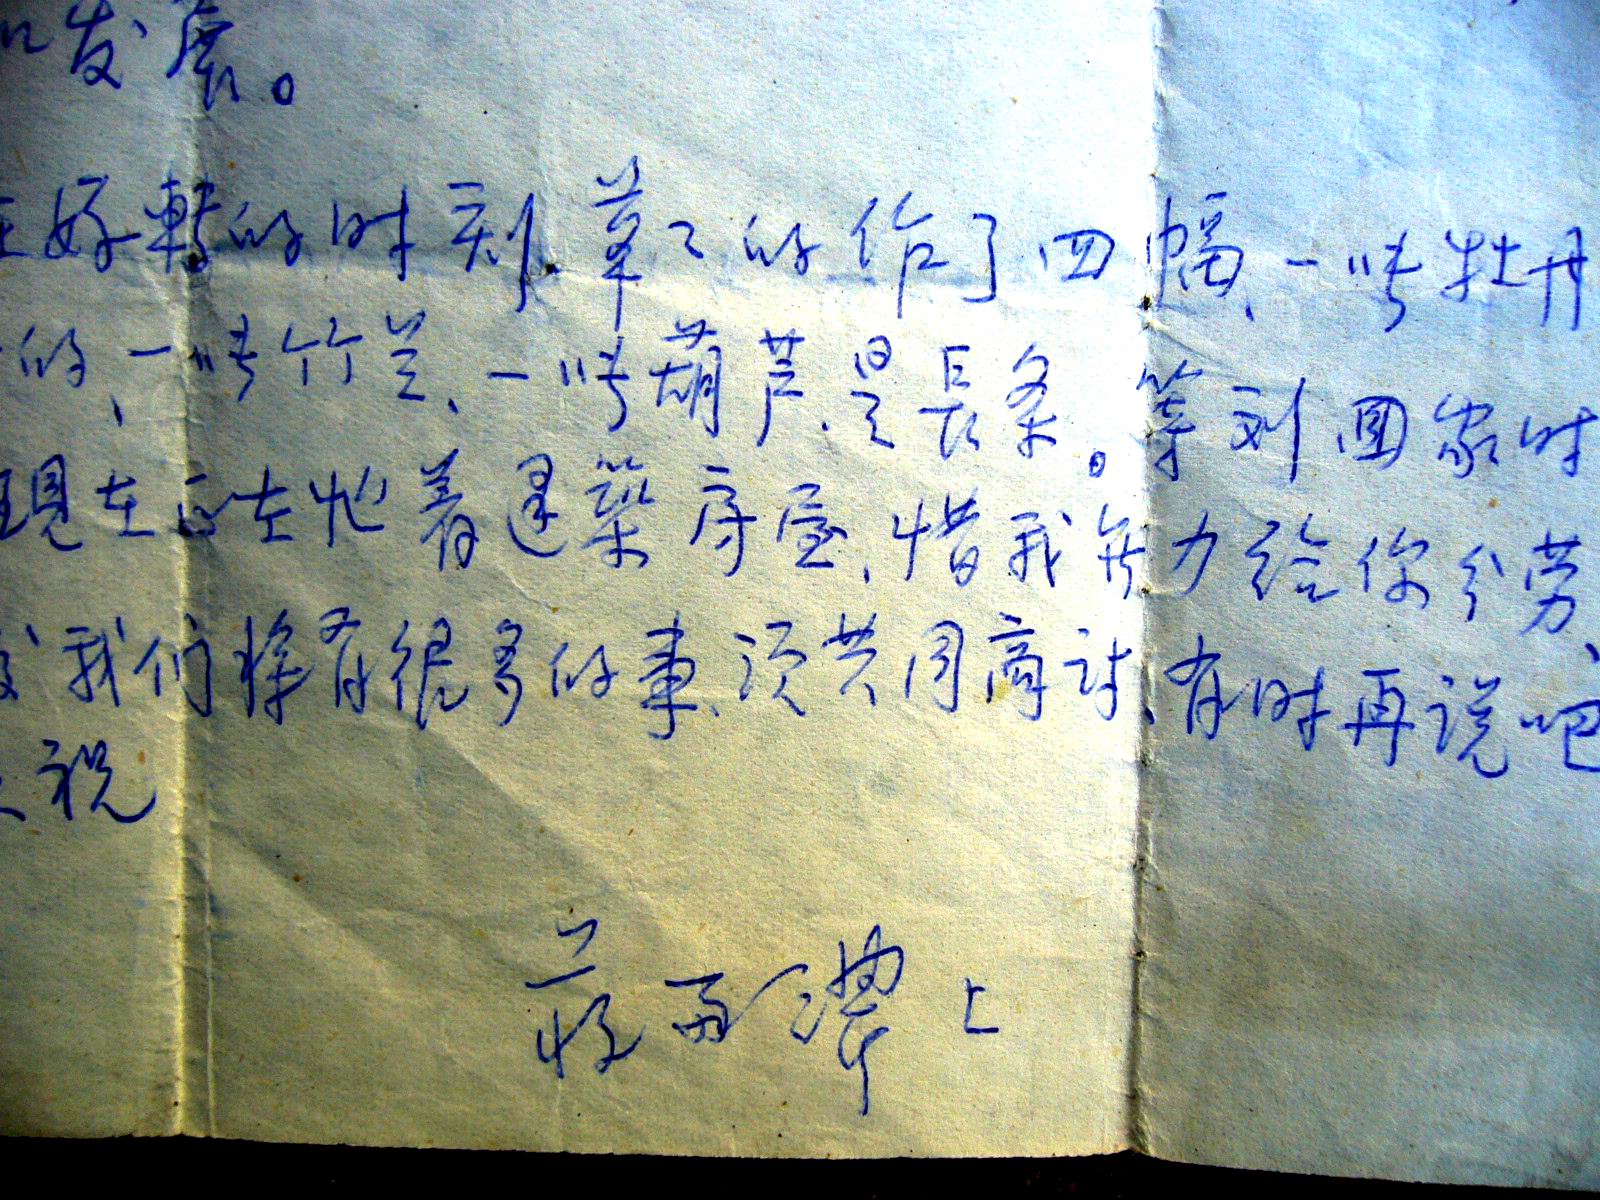 发展。
好轉的时刻.草々的作了四幅、一张牡丹
的、一张竹兰、一张葫芦.是長条。等刘回家时
現在正在忙着建築房屋、惜我无力给你分劳、
我们将有很多的事、须共同商讨、有时再说吧
祝
蒋雨 上